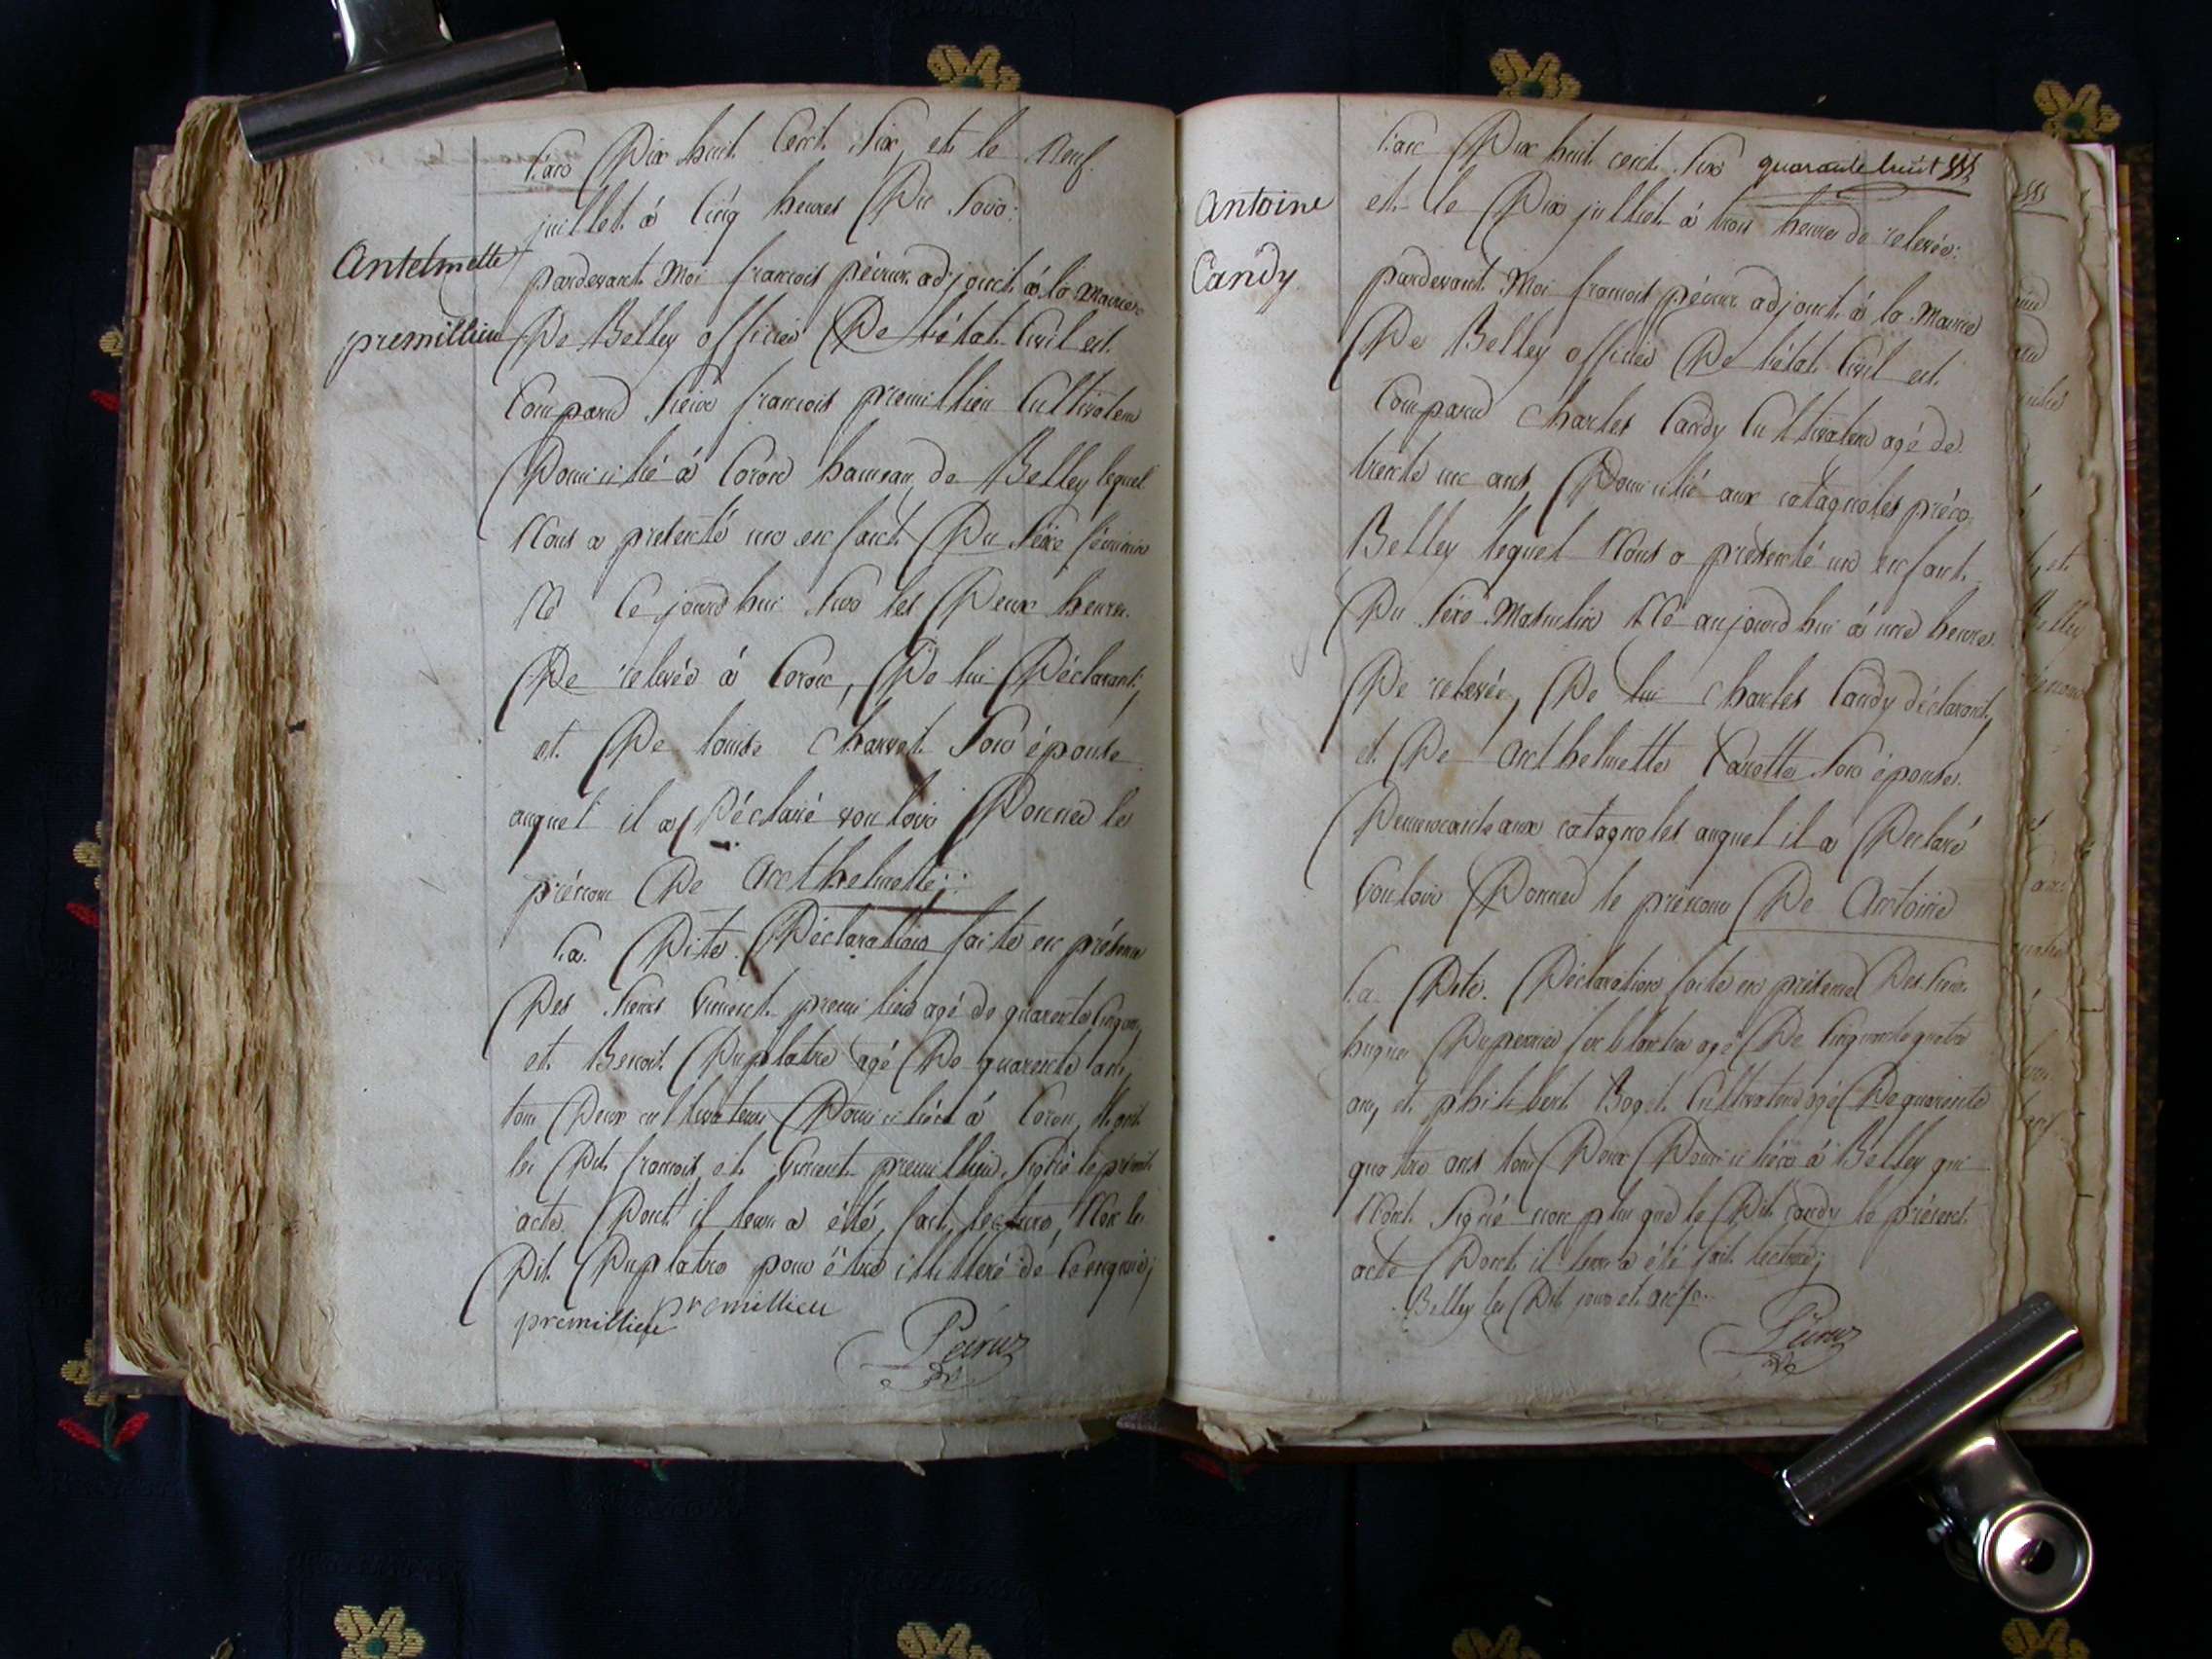 L'an Dix huit Cent Six, et le Neuf
juillet à Cinq heures Du Soir:
Antelmette
premillieu
pardevant Moi francois péruz adjoint à la Mairie
De Belley officier De l'état Civil est
Comparu Sieur francois premillieu Cultivateur
Domicilié à Coron hameau de Belley lequel
Nous a presenté un enfant Du Séxe féminin
Né Ce jourd'hui Sur les Deux heures
De relevée à Coron, De lui Déclarant,
et De louise Charvet Son épouse
auquel il a Déclaré vouloir Donner le
prénom De Anthelmette;
La Dite Déclaration faite en présence
Des Sieurs Vincent premillieu agé de quarente Cinq ans,
et Benoit Duplatre agé De quarente ans,
tous Deux cultivateurs Domiciliés à Coron, Et ont
les Dit francois et Vincent premillieu Signé le présent
acte Dont il leur a été fait lecture, Non le
Dit Duplatre pour être illitteré de Ce enquis;
premillieu premillieu
Péruz
L'an Dix huit cent Six quarante huit
Antoine
Candy
et le Dix juillet à trois heures de relevée:
pardevant Moi francois péruz adjoint à la Mairie
De Belley officier De l'état Civil est
Comparu Charles Candy Cultivateur agé de
trente un ans Domicilié aux catagnoles
Belley lequel Nous a présenté un enfant
Du Séxe Masculin Né aujourd'hui à une heure
De relevée, De lui Charles Candy déclarant,
et De Anthelmette Carotte Son épouse
Demeurante aux catagnoles auquel il a Declaré
Vouloir Donner le prénom De Antoine
La Dite Déclaration faite en présence Des Sieurs
hugues Duperrier ferblantier agé De Cinquante quatre
ans, et philibert Boget Cultivateur agé De quarente
quatre ans tous Deux Domiciliés à Belley qui
N'ont Signé non plus que le Dit Candy le présent
acte Dont il leur a été fait lecture;
Belley les Dit jour et an
Péruz